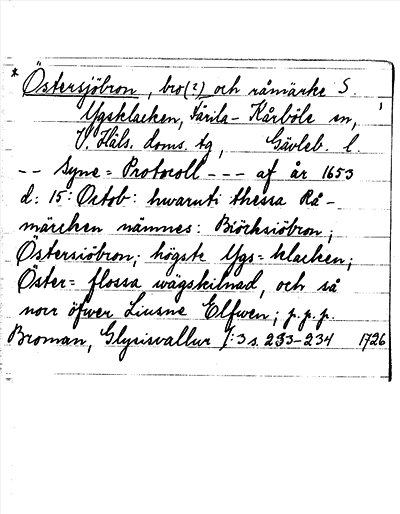 * Östersjöbron, bro(?) och råmärke S.
Ygsklacken, Färila-Kårböle sn,
V. Häls. doms. tg, Gävleb. l.
-- Syne = Protocoll --- af år 1653
d: 15: Octob: hwaruti thessa Rå-
märcken nämnes: Biörcksiöbron;
Östersiöbron; högste Ygs=klacken;
Öster= flossa wägskilnad, och så
norr öfwer Liusne Elfwen; p.p.p.
Broman, Glysisvallur I:3 s. 233-234 1726